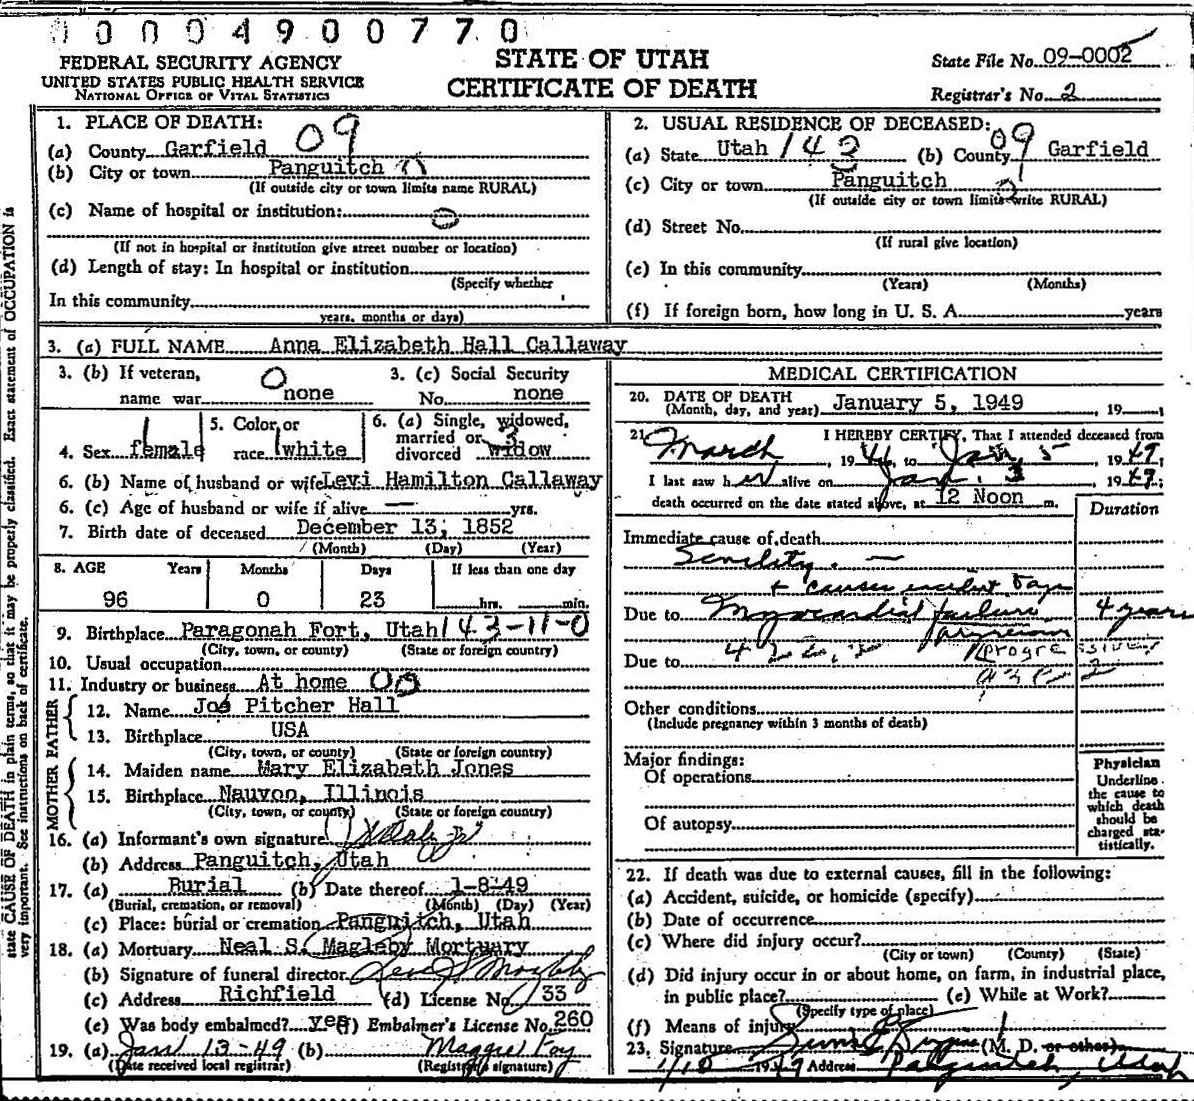 00004900770
FEDERAL SECURITY AGENCY
UNITED STATES PUBLIC HEALTH SERVICE
NATIONAL OFFICE OF VITAL STATISTICS
STATE OF UTAH
CERTIFICATE OF DEATH
State File No. 09-0002
Registrar's No. 2
1. PLACE OF DEATH: 09
(a) County Garfield
(b) City or town Panguitch
(If outside city or town limits name RURAL)
(c) Name of hospital or institution: 0
(If not in hospital or institution give street number or location)
(d) Length of stay: In hospital or institution
(Specify whether
In this community
years, months or days)
2. USUAL RESIDENCE OF DECEASED: 09
(a) State Utah 142 (b) County Garfield
(c) City or town Panguitch
(If outside city or town limits write RURAL)
(d) Street No.
(If rural give location)
(e) In this community
(Years) (Months)
(f) If foreign born, how long in U. S. A. years
3. (a) FULL NAME Anna Elizabeth Hall Callaway
3. (b) If veteran, 0 3. (c) Social Security
name war none No. none
4. Sex female
5. Color or
race white
6. (a) Single, widowed,
married or
divorced widow
6. (b) Name of husband or wife Levi Hamilton Callaway
6. (c) Age of husband or wife if alive — yrs.
7. Birth date of deceased December 13, 1852
(Month) (Day) (Year)
8. AGE Years Months Days If less than one day
96 0 23 hrs. min.
9. Birthplace Paragonah Fort, Utah 143-11-0
(City, town, or county) (State or foreign country)
10. Usual occupation
11. Industry or business At home 00
FATHER
12. Name Joe Pitcher Hall
13. Birthplace USA
(City, town, or county) (State or foreign country)
MOTHER
14. Maiden name Mary Elizabeth Jones
15. Birthplace Nauvoo, Illinois
(City, town, or county) (State or foreign country)
16. (a) Informant's own signature
(b) Address Panguitch, Utah
17. (a) Burial (b) Date thereof 1-8-49
(Burial, cremation, or removal) (Month) (Day) (Year)
(c) Place: burial or cremation Panguitch, Utah
18. (a) Mortuary Neal S. Magleby Mortuary
(b) Signature of funeral director
(c) Address Richfield (d) License No. 33
(e) Was body embalmed? yes (f) Embalmer's License No. 260
19. (a) Jan 13-49 (b) Maggie Foy
(Date received local registrar) (Registrar's signature)
MEDICAL CERTIFICATION
20. DATE OF DEATH
(Month, day, and year) January 5, 1949, 19
21. I HEREBY CERTIFY, That I attended deceased from
March, 19 44, to Jan. 5 19 49;
I last saw her alive on Jan. 3, 19 49;
death occurred on the date stated above, at 12 Noon m.
Duration
Immediate cause of death
Senility. —
+ causes incident to age
Due to Myocardial failure 4 years
progressive
(Progressive)
Due to 422.2
Other conditions
(Include pregnancy within 3 months of death)
Major findings:
Of operations
Of autopsy
Physician
Underline
the cause to
which death
should be
charged sta-
tistically.
22. If death was due to external causes, fill in the following:
(a) Accident, suicide, or homicide (specify)
(b) Date of occurrence
(c) Where did injury occur?
(City or town) (County) (State)
(d) Did injury occur in or about home, on farm, in industrial place,
in public place? (e) While at Work?
(Specify type of place)
(f) Means of injury
23. Signature (M. D. or other)
1/10 1949 Address Panguitch, Utah
state CAUSE OF DEATH in plain terms, so that it may be properly classified. Exact statement of OCCUPATION is
very important. See instructions on back of certificate.